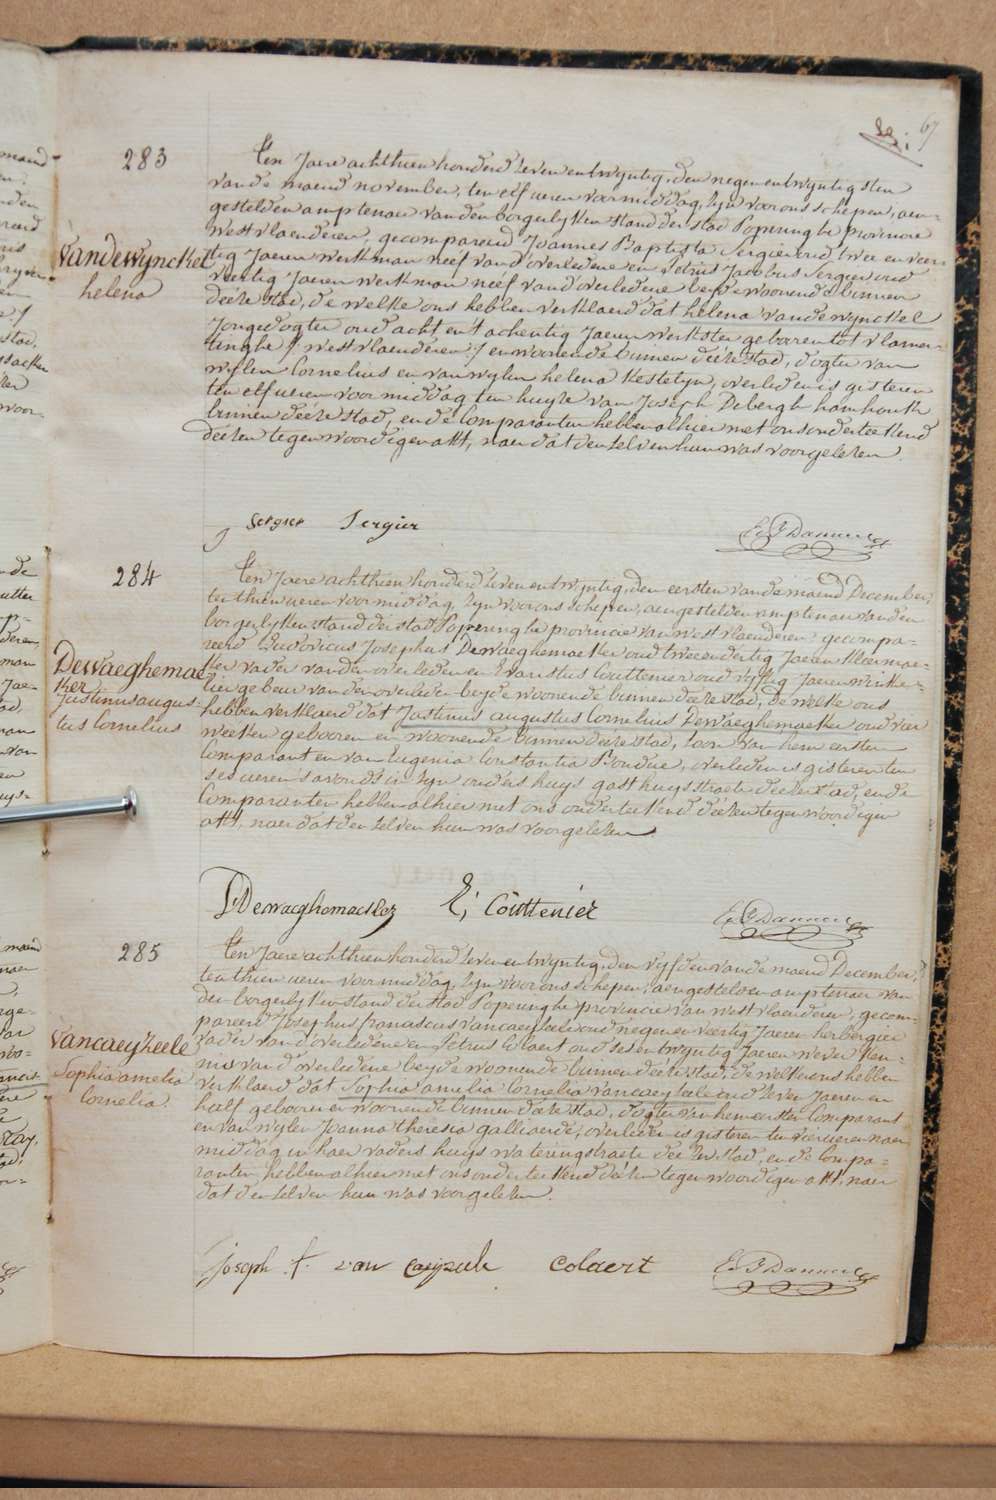 67
283
Vandewynckel
helena
ten Jaere achthien honderd zeven en twyntig, den negen en twyntigsten
van de maend november, ten elf ueren voormiddag, zyn voor ons schepen, aen-
gestelden amptenaer van den borgerlyken stand der stad Poperinghe provincie
Westvlaenderen, gecompareerd Joannes Baptista Sergier oud twee en veer-
tig Jaeren werkman neef van d'overledene en Petrus Jacobus Sergier oud
veertig Jaeren werkman neef van d'overledene beyde woonende binnen
deéze stad, de welke ons hebben verklaerd dat helena vandewynckel
Jongedogter oud acht en tachentig Jaeren werkster geboren tot vlamer-
tinghe /: westvlaenderen :/ en woonende binnen deéze stad, dogter van
wylen Cornelius en van wylen helena Kestelyn, overleden is gisteren
ten elf ueren voormiddag ten huyze van Joseph Debergh
binnen deéze stad, en de Comparanten hebben alhier met ons onderteekend
deézen tegenwoordigen akt, naer dat den zelven hun was voorgelezen.
sergier Sergier
284
Dewaeghemae-
ker
Justinus augus-
tus Cornelius
ten Jaere achthien honderd zeven en twyntig, den eersten van de maend December,
ten thien ueren voormiddag, zyn voor ons schepen, aengestelden amptenaer van den
borgerlyken stand der stad Poperinghe provincie van westvlaenderen, gecompa-
reerd Ludovicus Josephus Dewaeghemaeker oud twee en dertig Jaeren kleermae-
ker vader van den overleden en Evaristus Couttenier oud vyftig Jaeren winke-
lier gebeur van den overleden beyde woonende binnen deéze stad, de welke ons
hebben verklaerd dat Justinus augustus Cornelius Dewaeghemaeker oud vier
weeken gebooren en woonende binnen deéze stad, zoon van hem eersten
Comparant en van Eugenia Constantia Boudue, overleden is gisteren ten
ses ueren s'avonds in zyn ouders huys gasthuysstraete deézer stad, en de
Comparanten hebben alhier met ons onderteekend deézen tegenwoordigen
akt, naer dat den zelven hun was voorgelezen
LDewaeghemaeker E, Couttenier
285
Vancaeyzeele
Sophia amelia
Cornelia.
ten Jaere achthien honderd zeven en twyntig, den vyfden van de maend December,
ten thien ueren voormiddag, zyn voor ons schepen, aengestelden amptenaer van
den borgerlyken stand der stad Poperinghe provincie van westvlaenderen, gecom-
pareerd Josephus franciscus vancaeyzeele oud negen en veertig Jaeren herbergier
vader van d'overledene en Petrus Colaert oud ses en twyntig Jaeren wever ken-
nis van d'overledene beyde woonende binnen deéze stad, de welke ons hebben
verklaerd dat Sophia amelia Cornelia vancaeyzeele oud zeven Jaeren en
half gebooren en woonende binnen deéze stad, dogter van hem eersten Comparant
en van wylen Joanna theresia galliaerde, overleden is gisteren ten vier ueren naer
middag in haer vaders huys wateringstraete deézer stad, en de Compa-
ranten hebben alhier met ons onderteekend deézen tegenwoordigen akt, naer
dat den zelven hun was voorgelezen.
joseph f. van caeyzeele Colaert